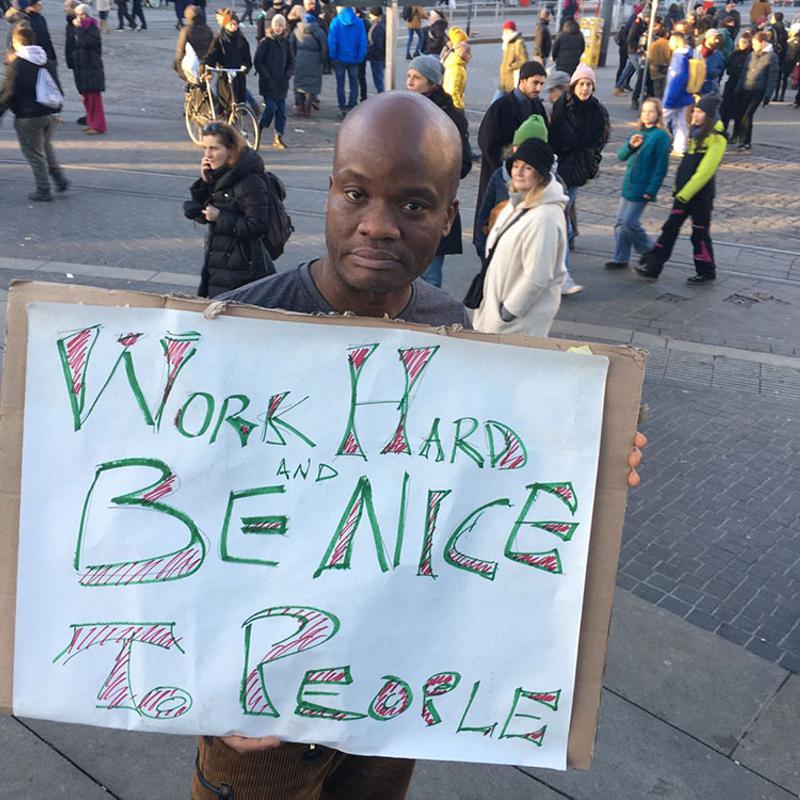 WORK HARD
AND
BE NICE
TO PEOPLE